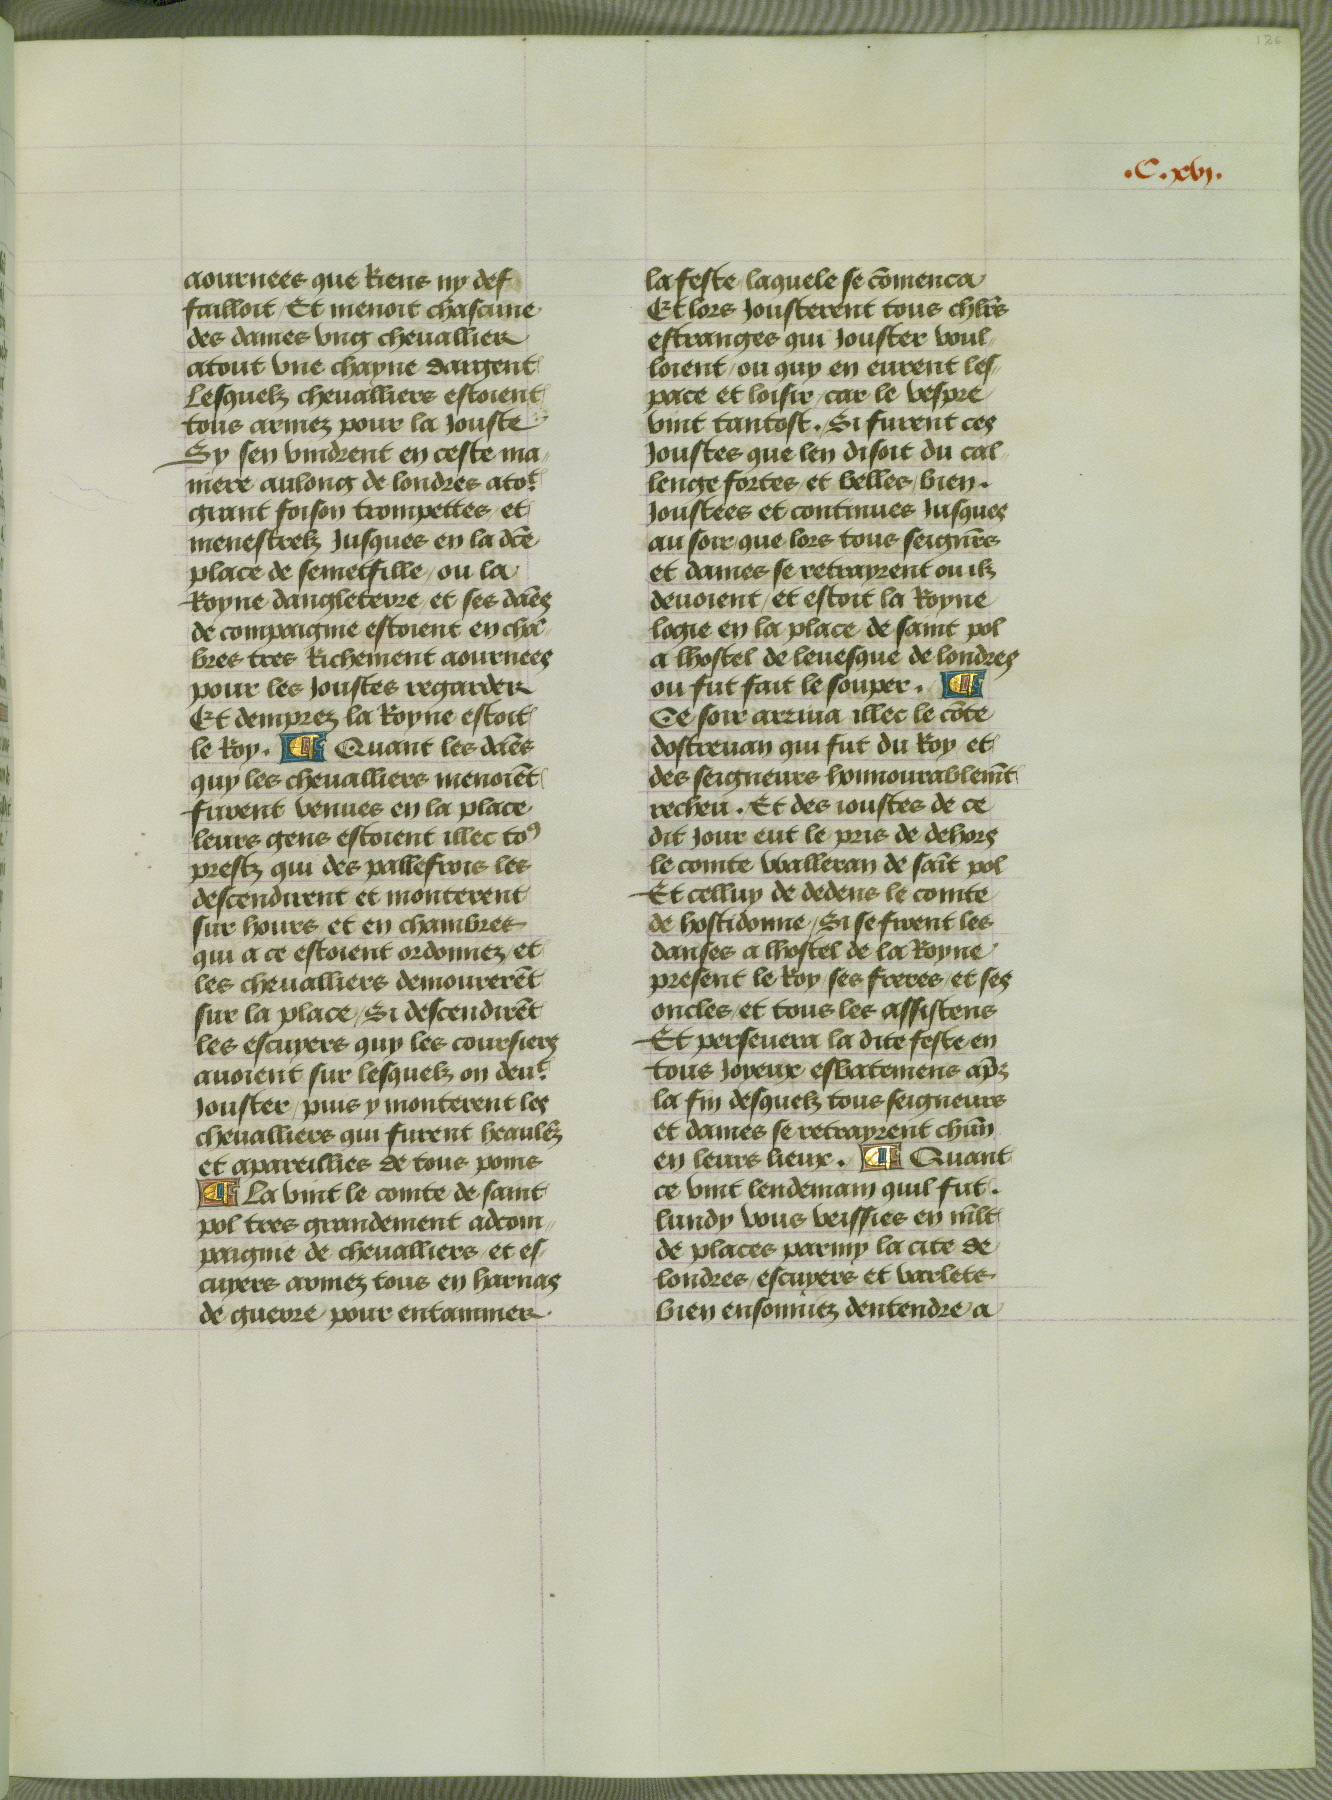 126
.C.xvj.
aournees que Riens ny def
failloit / Et menoit chascune
des dames vng cheuallier
atout vne chayne dargent
Lesquelz cheualliers estoient
tous armez pour la Jouste
Sy sen vindrent en ceste ma„
niere aulong de londres atot̃
grant foison trompettes / et
menestrelz Jusques en la dc̃e
place de semetfille / ou la
Royne dangleterre / et ses dães
de compaignie estoient en chã„
bres tres Richement aournees
pour les Joustes regarder
Et demprez la Royne estoit
le Roy. ¶ Quant les dães
quy les cheualliers menoiẽt
furent venues en la place
leurs gens estoient illec toꝰ
prestz qui des pallefrois les
descendirent et monterent
sur hours / et en chambres
qui a ce estoient ordonnez / et
les cheualliers demourerẽt
sur la place / Si descendirẽt
les escuyers quy les coursiers
auoient sur lesquelz on deut̃
Jouster / puis y monterent les
cheualliers qui furent heaulẽz
et apareillies de tous poins
¶ La vint le comte de saint
pol tres grandement adcom„
paignie de cheualliers / et es„
cuyers armez tous en harnas
de guerre / pour entammer
la feste / laquele se cõmenca
Et lors Jousterent tous chlr̃s
estranges qui Jouster voul„
loient / ou quy en eurent les„
pace et loisir / car le vespre
vint tantost. Si furent ces
Joustes que len disoit du cal„
lenge fortes / et belles / bien.
Joustees et continues Jusques
au soir que lors tous seignr̃s
et dames se retrayrent ou ilz
deuoient / et estoit la Royne
logie en la place de saint pol
a lhostel de leuesque de londres
ou fut fait le souper. ¶
Ce soir arriua illec le cõte
dostreuan qui fut du Roy et
des seigneurs honnourablemẽt
recheu. Et des ioustes de ce
dit Jour eut le pris de dehors
le comte walleran de saĩt pol
Et celluy de dedens le comte
de hostidonne / Si se firent les
danses a lhostel de la Royne
present le Roy ses freres / et ses
oncles / et tous les assistens
Et perseuera la dite feste en
tous Joyeux esbatemens ap̃z
la fin desquelz tous seigneurs
et dames se retrayrent chũn
en leurs lieux. ¶ Quant
ce vint lendemain quil fut.
lundy vous veissies en ml̃t
de places parmy la cite de
londres / escuyers et varlets
bien ensonniez dentendre a